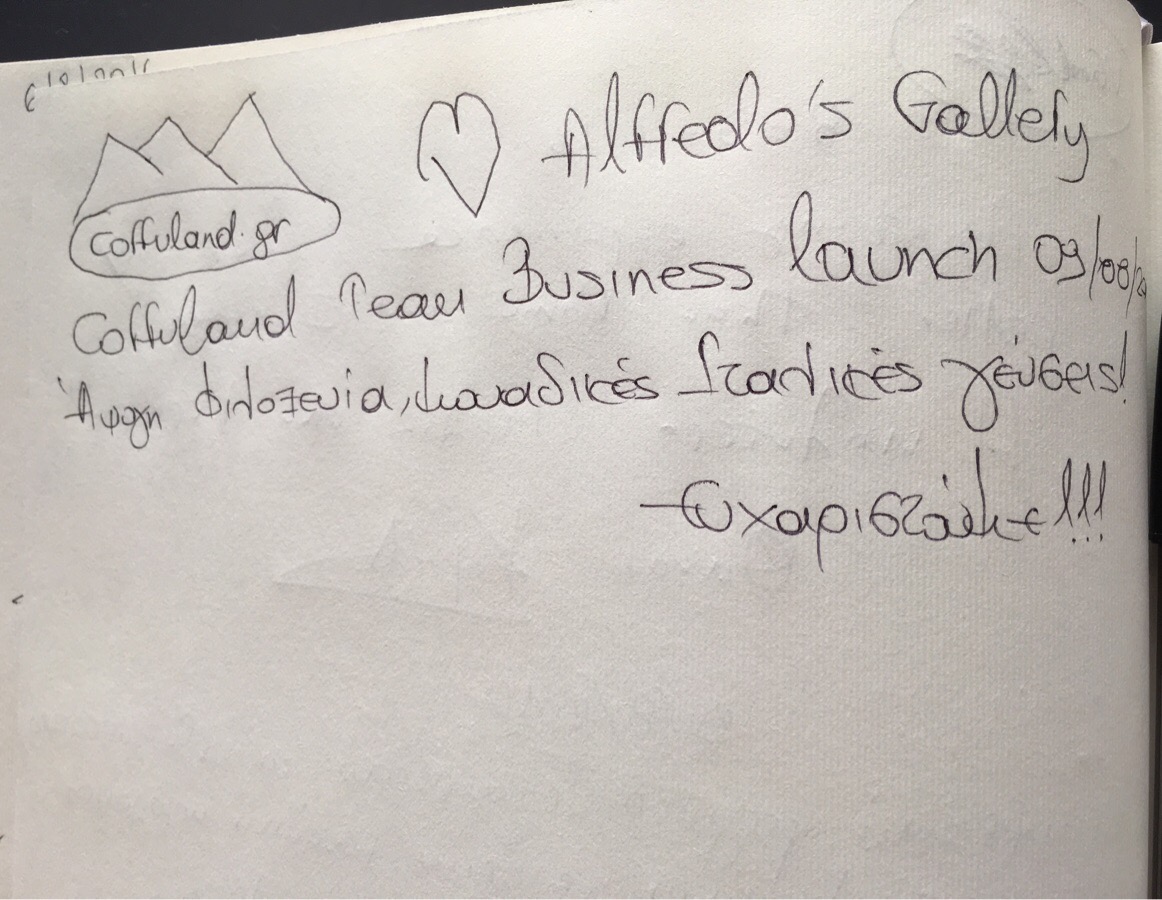 Corfuland.gr
Alfredo's Gallery
Corfuland Team Business launch 09/08/2
Άψογη φιλοξενία, μοναδικές Ιταλικές γεύσεις!
Ευχαριστούμε!!!